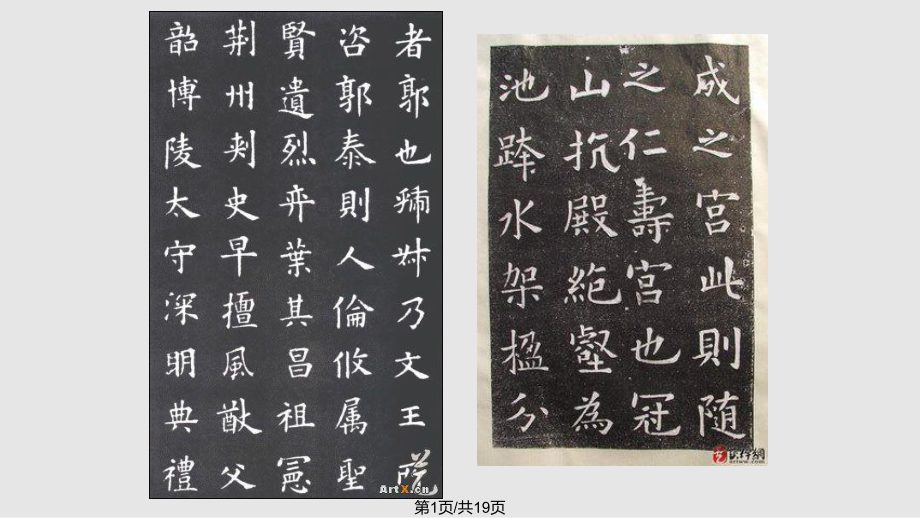 者郭也虢叔乃文王所
咨郭泰則人倫攸属聖
賢遺烈弈葉其昌祖憲
荆州刾史早擅風猷父
韶博陵太守深明典禮
ArtX.cn
成之宫此則随
之仁壽宫也冠
山抗殿絶壑為
池跨水架楹分
artww.com
第1页/共19页